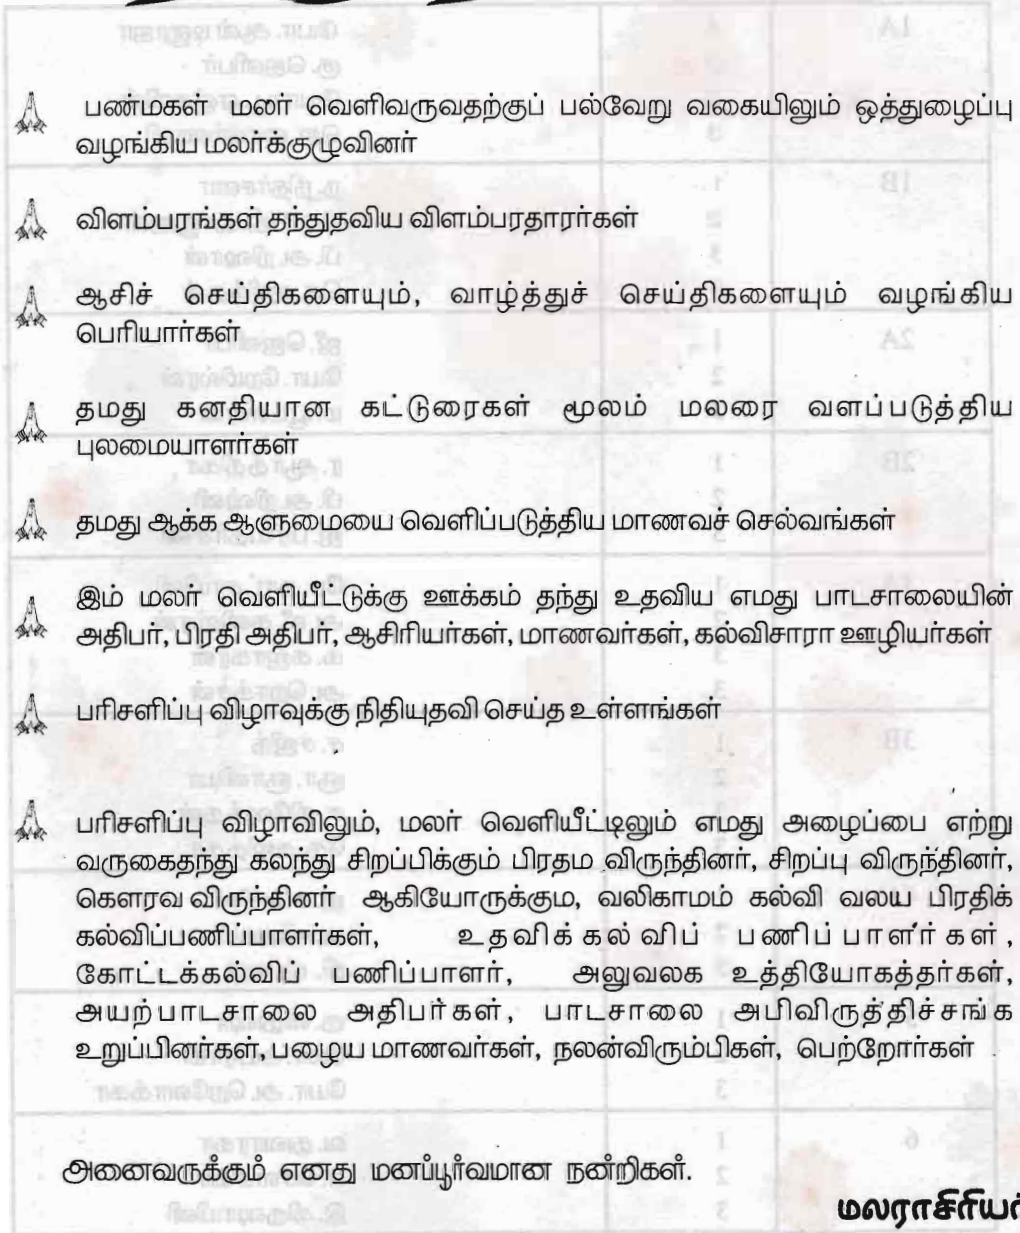 பண்மகள் மலர் வெளிவருவதற்குப் பல்வேறு வகையிலும் ஒத்துழைப்பு
வழங்கிய மலர்க்குழுவினர்
விளம்பரங்கள் தந்துதவிய விளம்பரதாரர்கள்
ஆசிச் செய்திகளையும், வாழ்த்துச் செய்திகளையும் வழங்கிய
பெரியார்கள்
தமது கனதியான கட்டுரைகள் மூலம் மலரை வளப்படுத்திய
புலமையாளர்கள்
தமது ஆக்க ஆளுமையை வெளிப்படுத்திய மாணவச் செல்வங்கள்
இம் மலர் வெளியீட்டுக்கு ஊக்கம் தந்து உதவிய எமது பாடசாலையின்
அதிபர், பிரதி அதிபர், ஆசிரியர்கள், மாணவர்கள், கல்விசாரா ஊழியர்கள்
பரிசளிப்பு விழாவுக்கு நிதியுதவி செய்த உள்ளங்கள்
பரிசளிப்பு விழாவிலும், மலர் வெளியீட்டிலும் எமது அழைப்பை எற்று
வருகைதந்து கலந்து சிறப்பிக்கும் பிரதம விருந்தினர், சிறப்பு விருந்தினர்,
கௌரவ விருந்தினர் ஆகியோருக்கும, வலிகாமம் கல்வி வலய பிரதிக்
கல்விப்பணிப்பாளர்கள், உதவிக் கல்விப் பணிப்பாளர்கள்,
கோட்டக்கல்விப் பணிப்பாளர், அலுவலக உத்தியோகத்தர்கள்,
அயற்பாடசாலை அதிபர்கள், பாடசாலை அபிவிருத்திச்சங்க
உறுப்பினர்கள், பழைய மாணவர்கள், நலன்விரும்பிகள், பெற்றோர்கள்
அனைவருக்கும் எனது மனப்பூர்வமான நன்றிகள்.
மலராசிரியர்